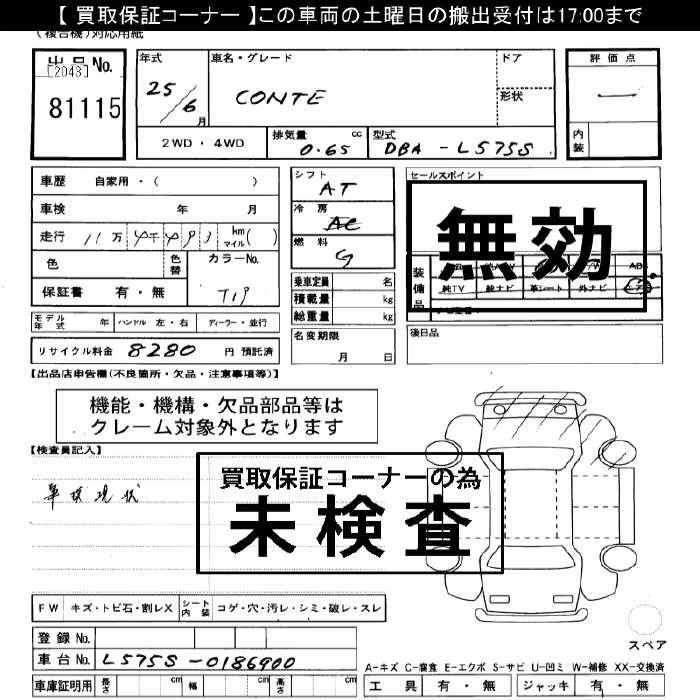 【 買取保証コーナー 】この車両の土曜日の搬出受付は17:00まで
(複合機)対応用紙
出品No.
[2043]
81115
年式
25/6月
車名・グレード
CONTE
ドア
形状
2WD・4WD
排気量 0.65 cc
型式 DBA-L575S
評価点
内装
車歴 自家用・( )
車検 年 月
走行 11万 km マイル( )
色 色替 カラーNo.
保証書 有・無 T19
モデル年式 年 ハンドル 左・右 ディーラー・並行
リサイクル料金 8280 円 預託済
シフト AT
冷房 AC
燃料 G
乗車定員 名
積載量 kg
総重量 kg
名変期限
月 日
セールスポイント
無効
装備品
純TV 純ナビ 革シート 外ナビ
後日品
【出品店申告欄(不良箇所・欠品・注意事項等)】
機能・機構・欠品部品等は
クレーム対象外となります
【検査員記入】
車検現状
買取保証コーナーの為
未検査
FW キズ・トビ石・割レX シート内装 コゲ・穴・汚レ・シミ・破レ・スレ
登録No.
車台No. L575S-0186900
車庫証明用 長さ cm 幅 cm 高さ cm
スペア
A-キズ C-腐食 E-エクボ S-サビ U-凹ミ W-補修 XX-交換済
工具 有・無 ジャッキ 有・無